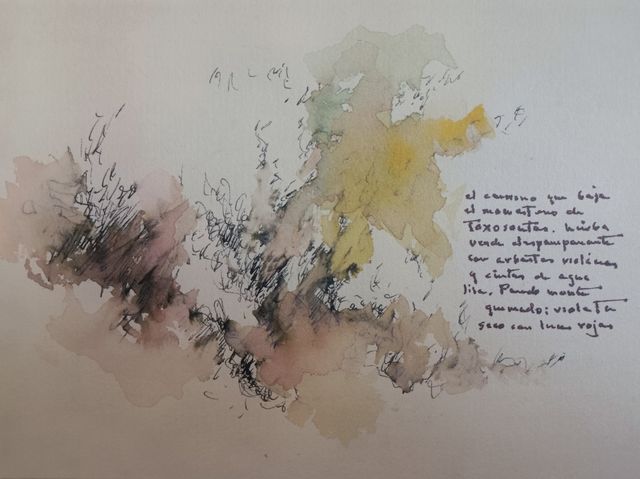 el camino que baja
el monasterio de
Toxosoutos. hierba
verde despampanante
con arbustos violáceos
y cintas de agua
lila. Pardo monte
quemado: violeta
seco con luces rojas